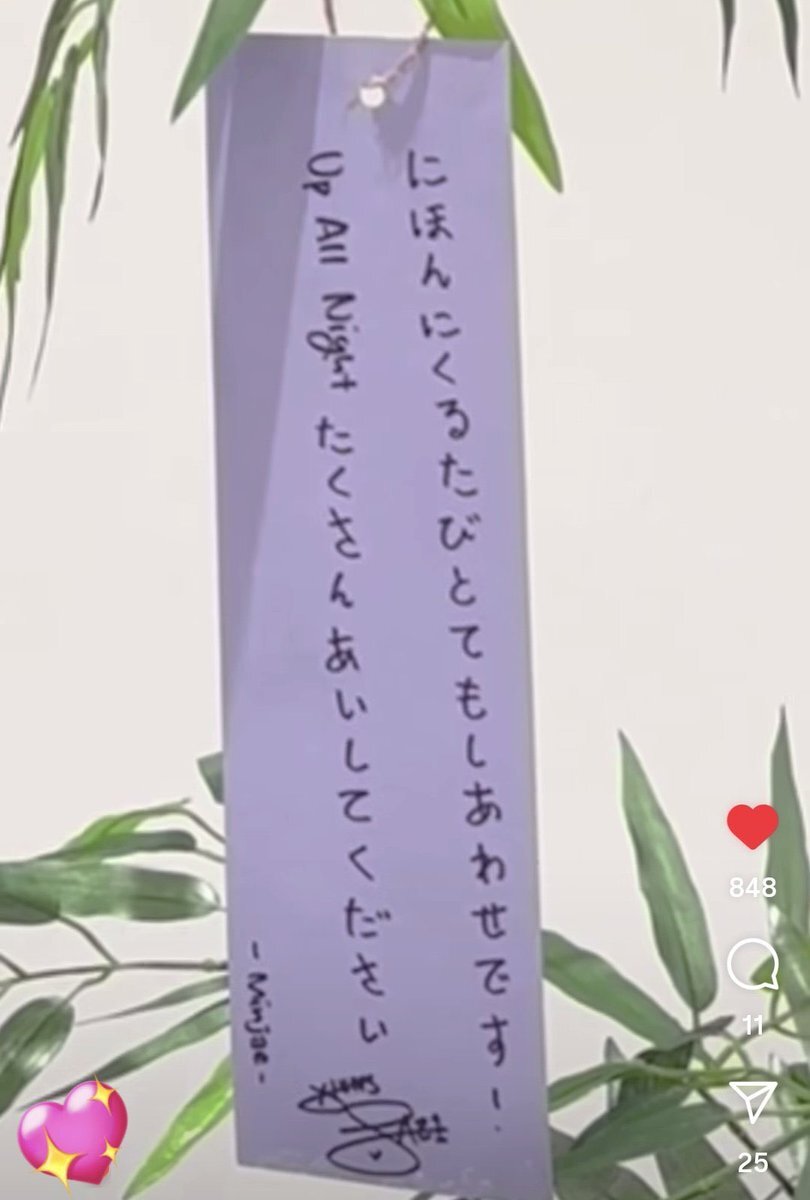 にほんにくるたびとてもしあわせです!
Up All Night たくさんあいしてください
- Minjae -
848
11
25